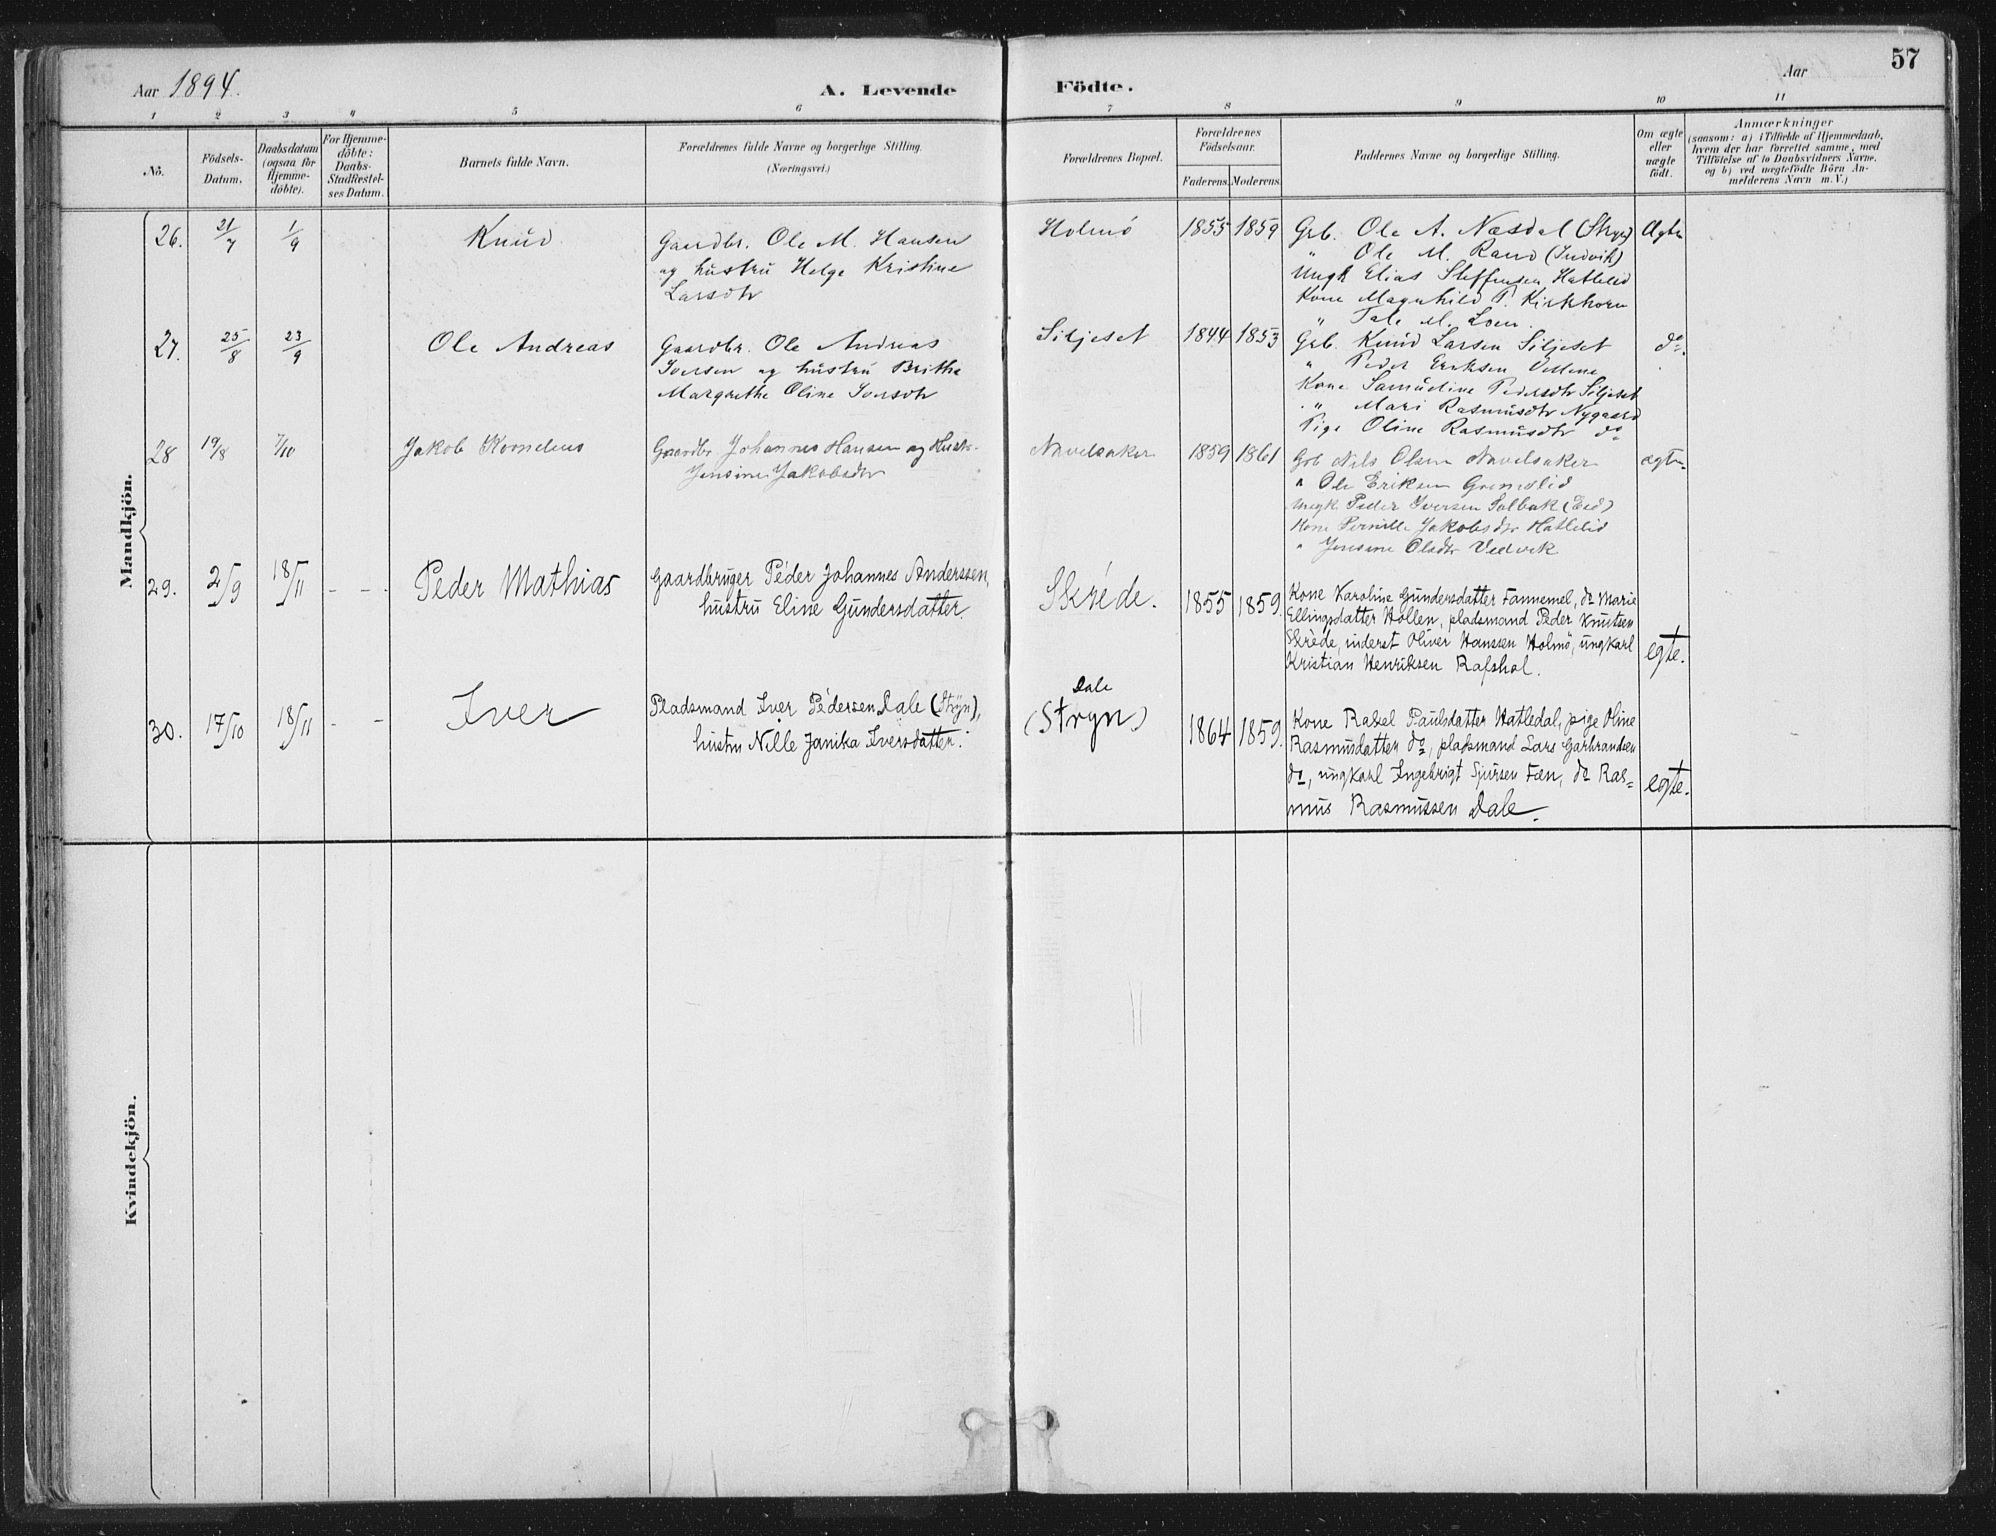 57
Aar 1894. A. Levende Födte. Aar
1 2 3 4 5 6 7 8 9 10 11
No. Födsels-Datum. Daabsdatum (ogsaa för Hjemme-döbte). For Hjemme-döbte: Daabs-Stadfæstel-ses Datum. Barnets fulde Navn. Forældrenes fulde Navne og borgerlige Stilling. (Næringsvei.) Forældrenes Bopæl. Forældrenes Födselsaar. Faderens. Moderens. Faddernes Navne og borgerlige Stilling. Om ægte eller uægte födt. Anmærkninger (saasom: a) i Tilfælde af Hjemmedaab, hvem der har forrettet samme, med Tilföielse af to Daabsvidners Navne, og b) ved uægtefödte Börn An-melderens Navn m.V.)
Mandkjön.
26. 21/7 1/9 Knud Gaardbr. Ole M. Hansen Holmö 1855 1859 Grb. Ole A. Næsdal (Stryn) Ægte
og hustru Helge Kristine " Ole M. Rand (Indvik)
Larsdtr Ungk Elias Steffensen Hatlelid
Kone Magnhild P. Kirkhorn
" Tale M. Loen.
27. 25/8 23/9 Ole Andreas Gaardbr. Ole Andreas Siljeset 1844 1853 Grb. Knud Larsen Siljeset do.
Iversen og hustru Brithe " Peder Eriksen
Margrethe Oline Iversdtr Kone Samueline Pedersdtr Siljeset
" Mari Rasmusdtr Nygaard
Pige Oline Rasmusdtr do
28 19/8 7/10 Jakob Kornelius Gaardbr Johannes Hansen og Hustr. Navelsaker 1859 1861 Grb Nils Olsen Navelsaker ægte.
Jensine Jakobsdtr " Ole Eriksen
Ungk Peder Iversen (Eid)
Kone Pernille Jakobsdtr Hatlelid
" Jensine Olsdtr Vedvik
29. 2/9 18/11 - - - Peder Mathias Gaardbruger Peder Johannes Anderssen, Skrede. 1855 1859. Kone Karoline Gundersdatter Fannemel, do Marie
hustru Eline Gundersdatter. Ellingsdatter Hollen, pladsmand Peder Knutsen
Skrede, inderst Oliver Hanssen Holmö, ungkarl
Kristian Henriksen Rafshol. egte.
30. 17/10 18/11 - - Iver Pladsmand Iver Pedersen Dale (Stryn), Dale (Stryn) 1864 1859. Kone Rakel Paulsdatter Hatledal, pige Oline
hustru Nille Janika Iversdatter. Rasmusdatter do, pladsmand Lars Garbrandsen
do, ungkarl Ingebrigt Sjursen Fæn, do Ras=
mus Rasmussen Dale. egte.
Kvindekjön.